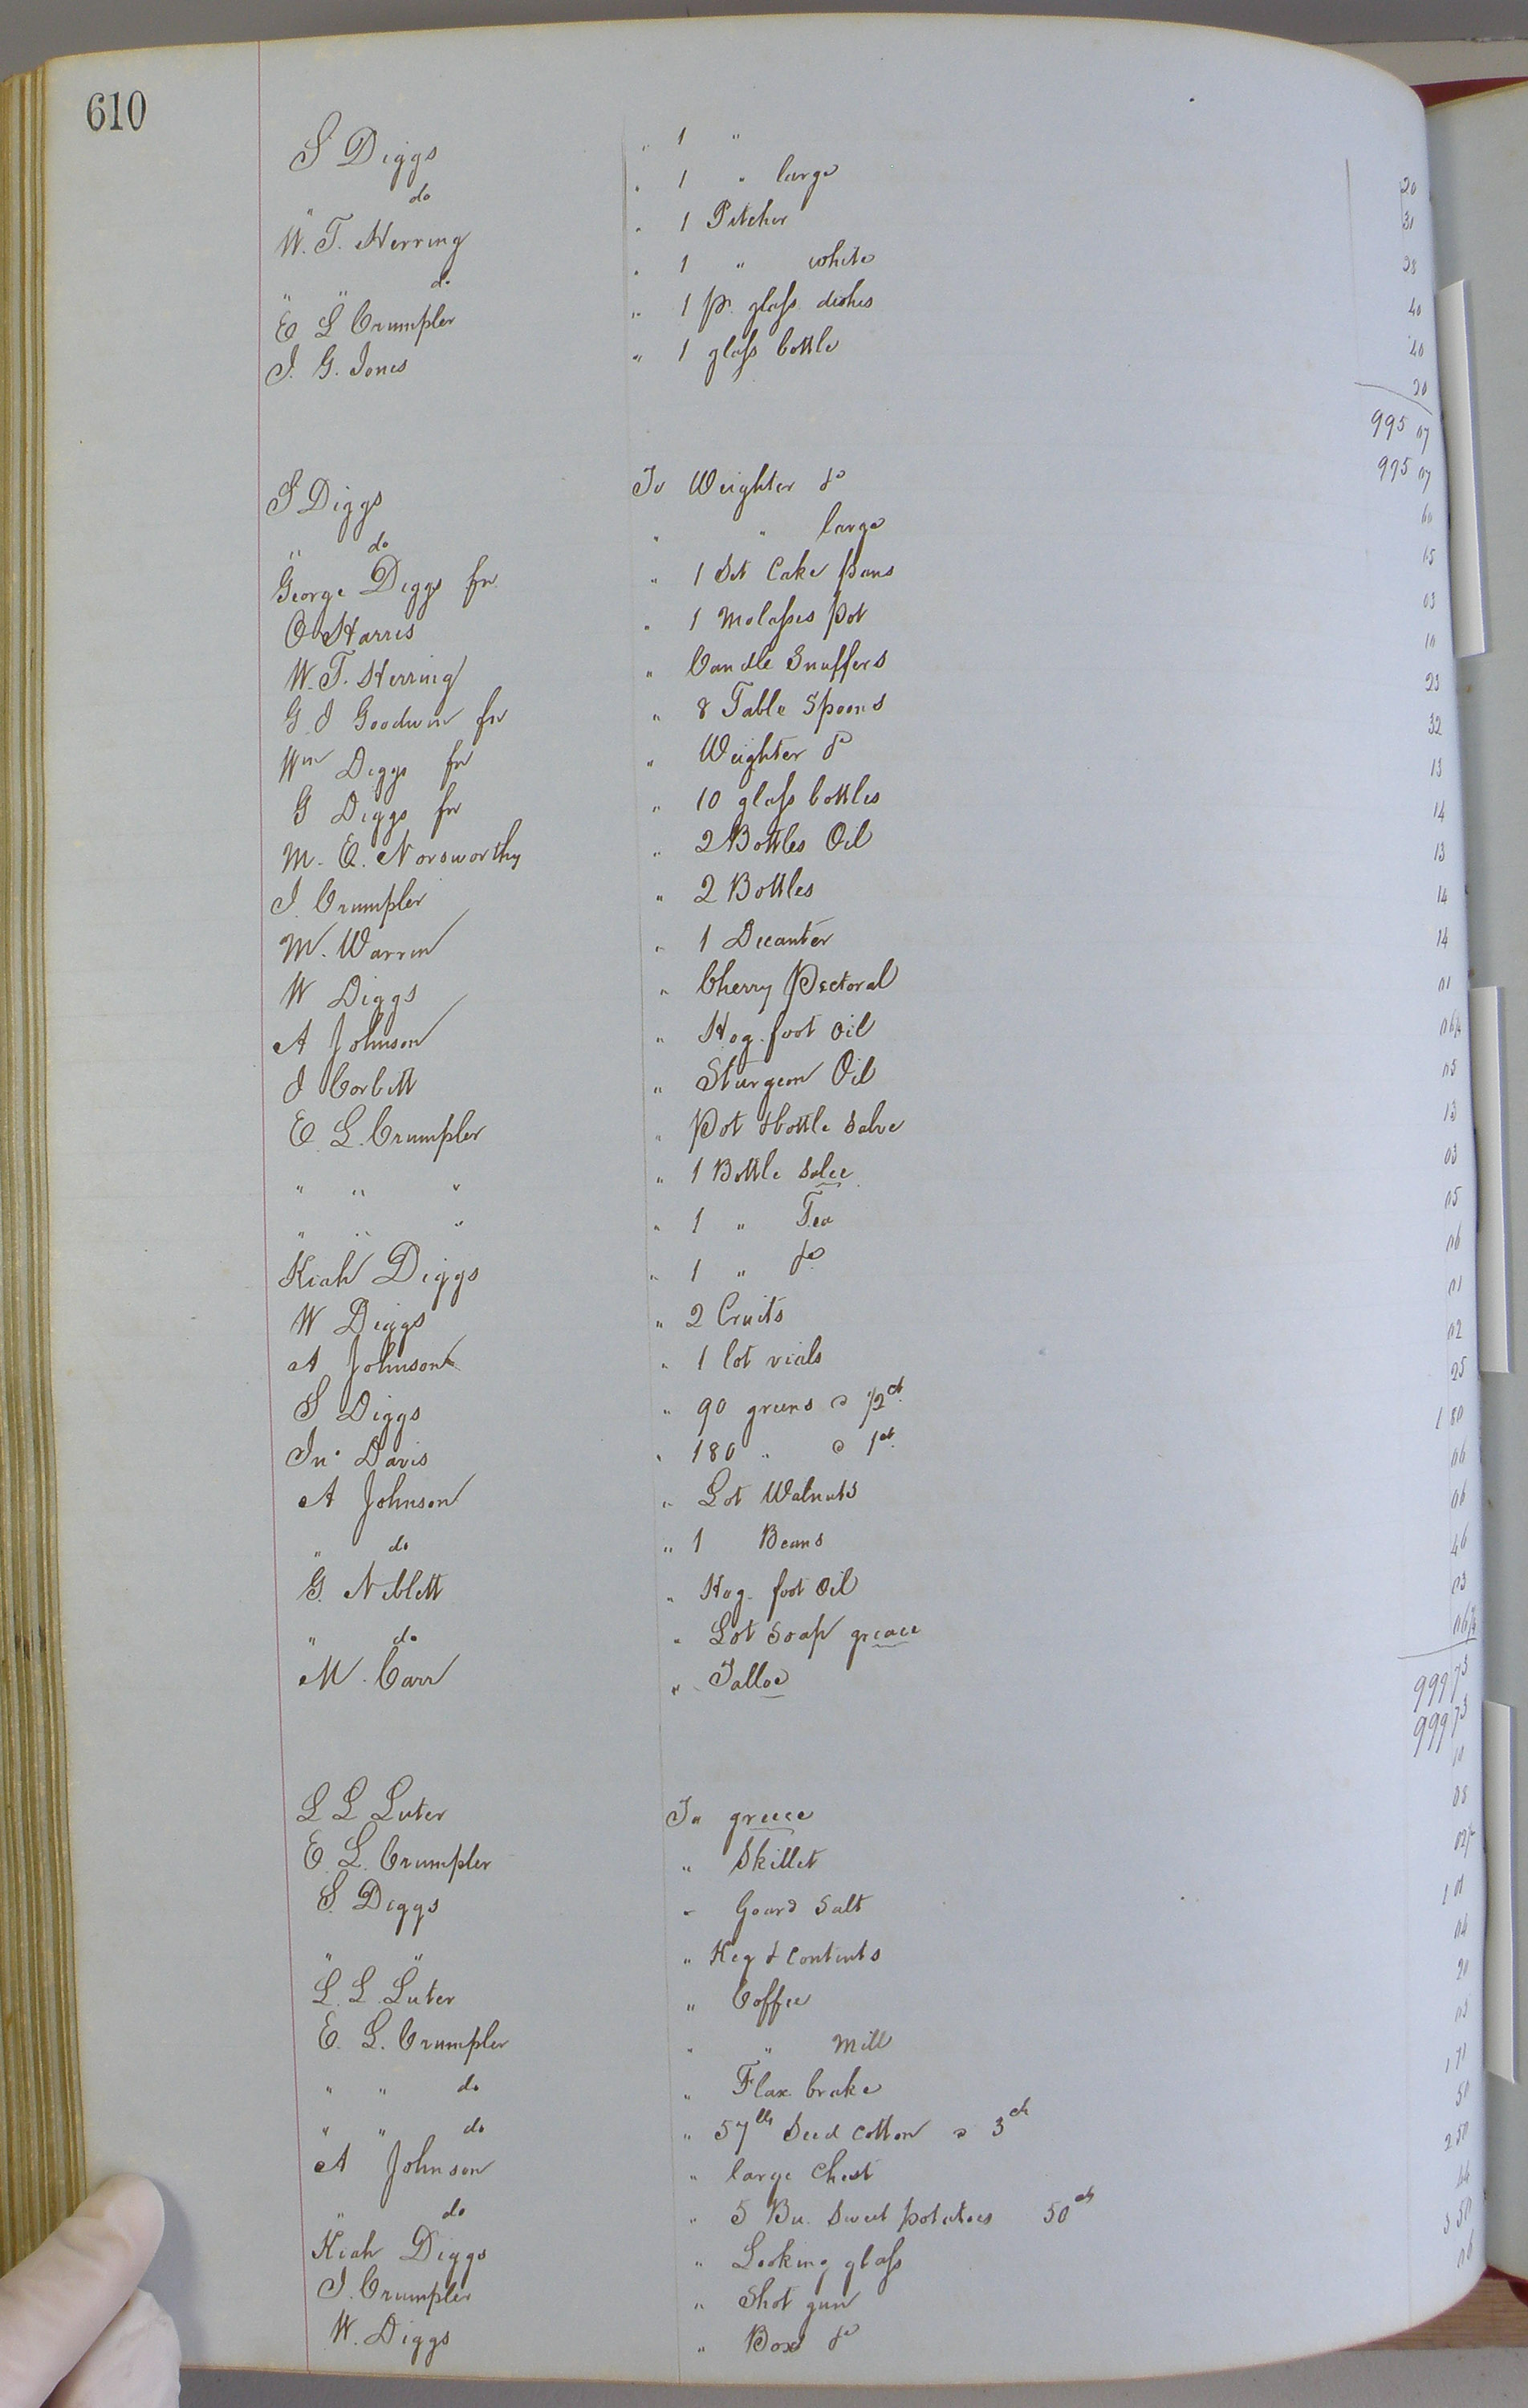 610
S Diggs " 1 " 20
" do " 1 " large 31
W. T. Herring " 1 Pitcher 28
" " do " 1 " white 40
E L Crumpler " 1 pr. glass dishes 40
J. G. Jones " 1 glass bottle 20
995 07
995 07
S Diggs To Weighter &c 60
" do " " large 15
George Diggs fn " 1 Set Cake pans 03
O Harris " 1 Molasses pot 10
W. T. Herring " Candle Snuffers 25
G J Goodwin fn " 8 Table Spoons 32
Wm Diggs fn " Weighter &c 13
G Diggs fn " 10 glass bottles 14
M. E. Norsworthy " 2 Bottles Oil 13
J. Crumpler " 2 Bottles 14
M. Warren " 1 Decanter 14
W Diggs " Cherry Pectoral 01
A Johnson " Hog. foot Oil 06 1/4
J Corbitt " Sturgeon Oil 05
E. L. Crumpler " Pot & bottle Salve 13
" " " " 1 Bottle Salee 03
" " " " 1 " Tea 05
Kiah Diggs " 1 " &c 06
W Diggs " 2 Cruits 01
A Johnson " 1 lot vials 02
S Diggs " 90 greens @ 1/2 ct. 25
Jno Davis " 180 " @ 1 ct. 1 80
A Johnson " Lot Walnuts 06
" do " 1 Beans 06
G. Niblett " Hog. foot Oil 46
" do " Lot Soap greace 03
M. Carr " Talloe 06 1/4
999 73
999 73
L L Luter To greece 10
E. L. Crumpler " Skillet 08
S. Diggs " Gourd Salt 02 1/2
" " " Keg & contents 1 01
L. L. Luter " Coffee 04
E. L. Crumpler " " Mill 20
" " do " Flax brake 05
" " do " 57 lbs Seed Cotton @ 3 ct 1 71
A Johnson " large Chest 50
" do " 5 Bu. Sweet potatoes 50 ct 2 50
Kiah Diggs " Looking glass 44
J. Crumpler " Shot gun 3 50
W. Diggs " Box &c 06